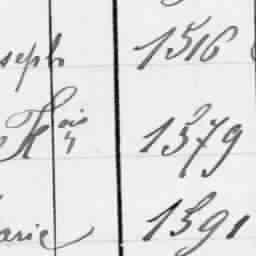 seph 1516
ois 1579
arie 1591